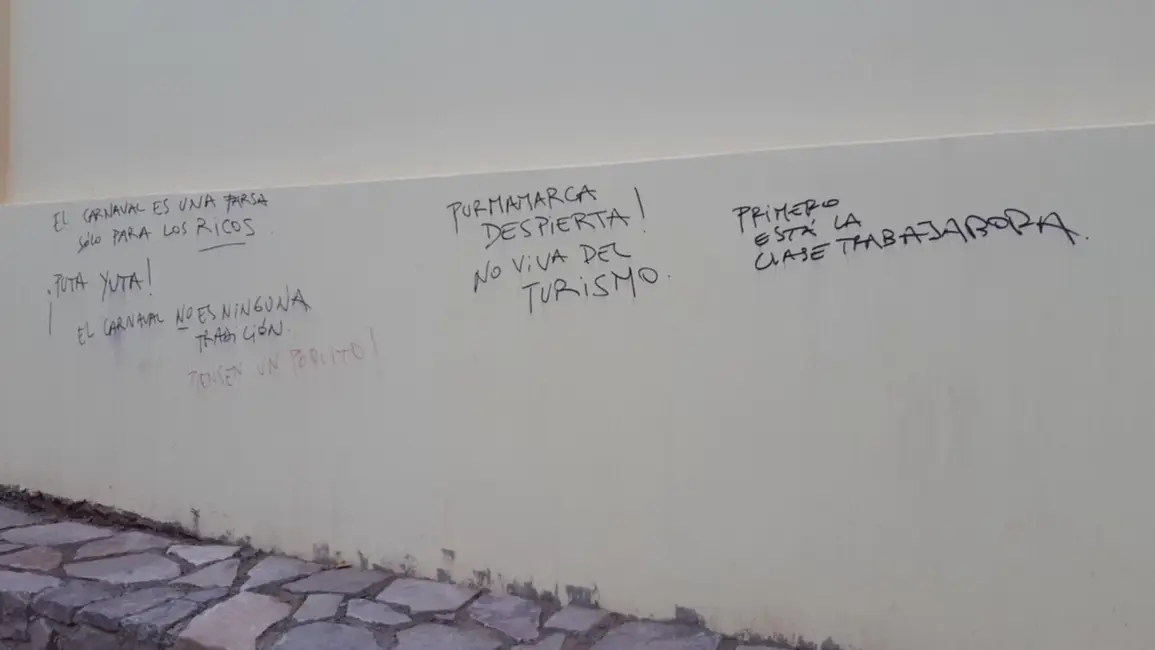 EL CARNAVAL ES UNA FARSA
SÓLO PARA LOS RICOS.
¡PUTA YUTA!
EL CARNAVAL NO ES NINGUNA
TRADICIÓN.
PIENSEN UN POQUITO!
PURMAMARCA
DESPIERTA!
NO VIVA DEL
TURISMO.
PRIMERO
ESTÁ LA
CLASE TRABAJADORA.